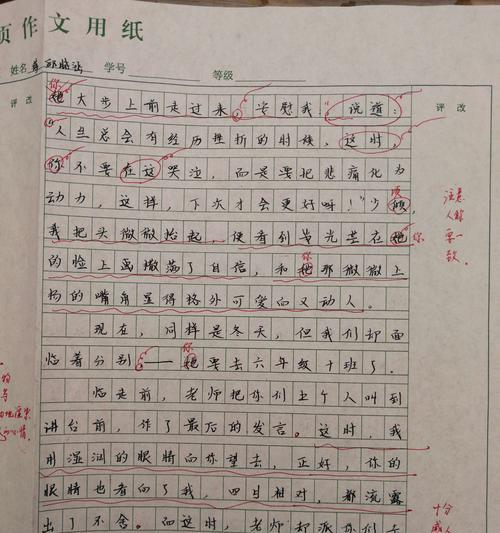 页作文用纸
姓名 学号 等级
评改 评改
你
她大步上前走过来,安慰我:说道:
人生总会有经历挫折的时候,这时,
你不要在这哭泣,而是要把悲痛化为
动力,这样,下次才会更好呀!”少顷
我把头微微抬起,便看到
的脸上 了自信,和她那微微上
你
扬的嘴角显得格外可爱而又动人。
现在,同样是冬天,但我们却面
你
临着分别——她要去六年级十班了。
临走前,老师把你们五个人叫到
讲台前,作了最后的发言。这时,我
用湿润的眼睛向你望去,正好,你的
眼睛也看向了我,四目相对,都流露
出了不舍。而这时,老师却派你们去
注意
人称
要一
致。
十分
感人